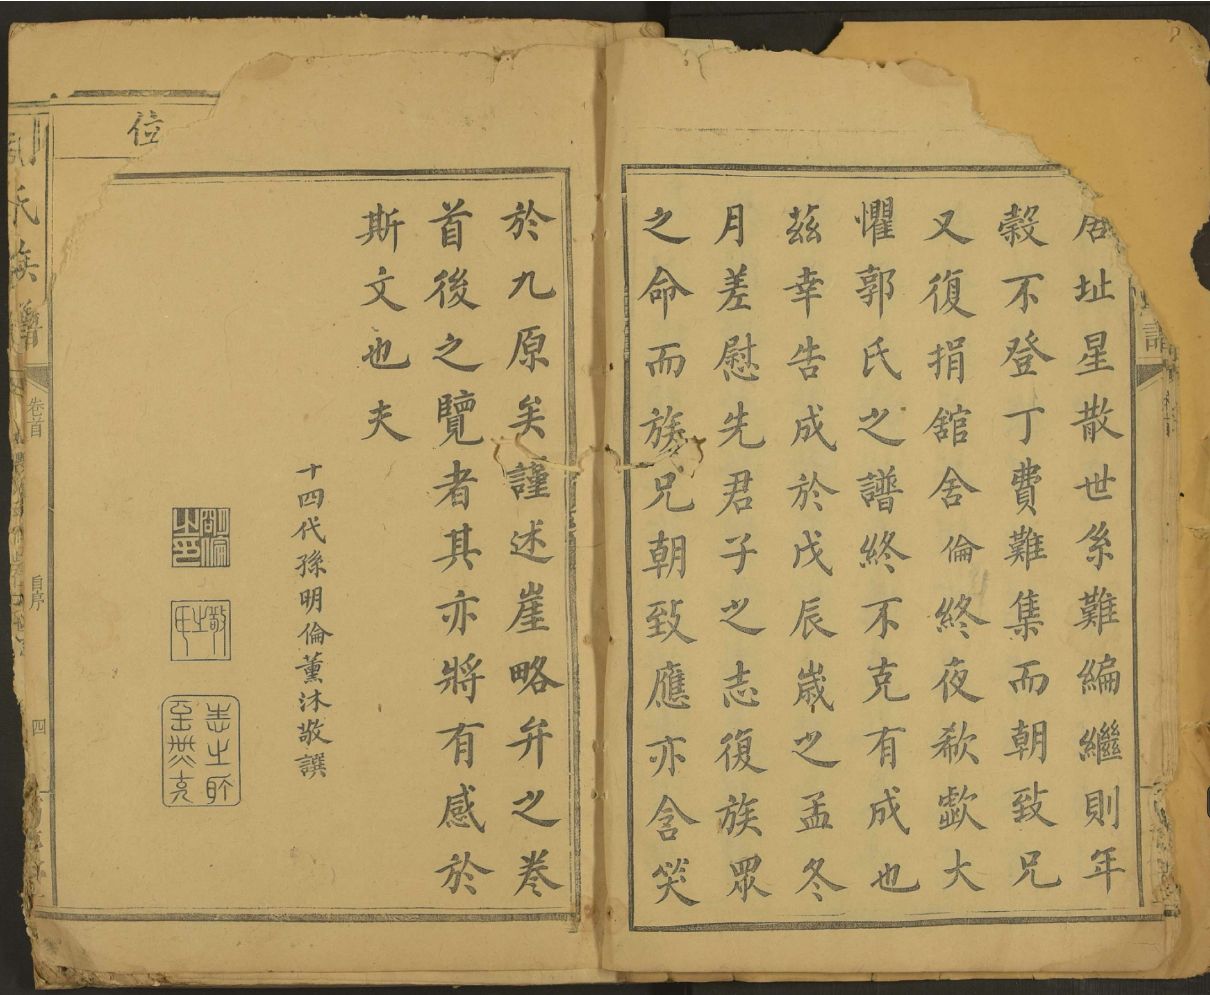 居址星散世系難編繼則年
穀不登丁費難集而朝致兄
又復捐舘舍倫終夜欷歔大
懼郭氏之譜終不克有成也
茲幸告成於戊辰歲之孟冬
月差慰先君子之志復族眾
之命而族兄朝致應亦含笑
於九原矣謹述崖略弁之卷
首後之覽者其亦將有感於
斯文也夫
十四代孫明倫薰沐敬譔
位
氏族譜
卷首
自序
四